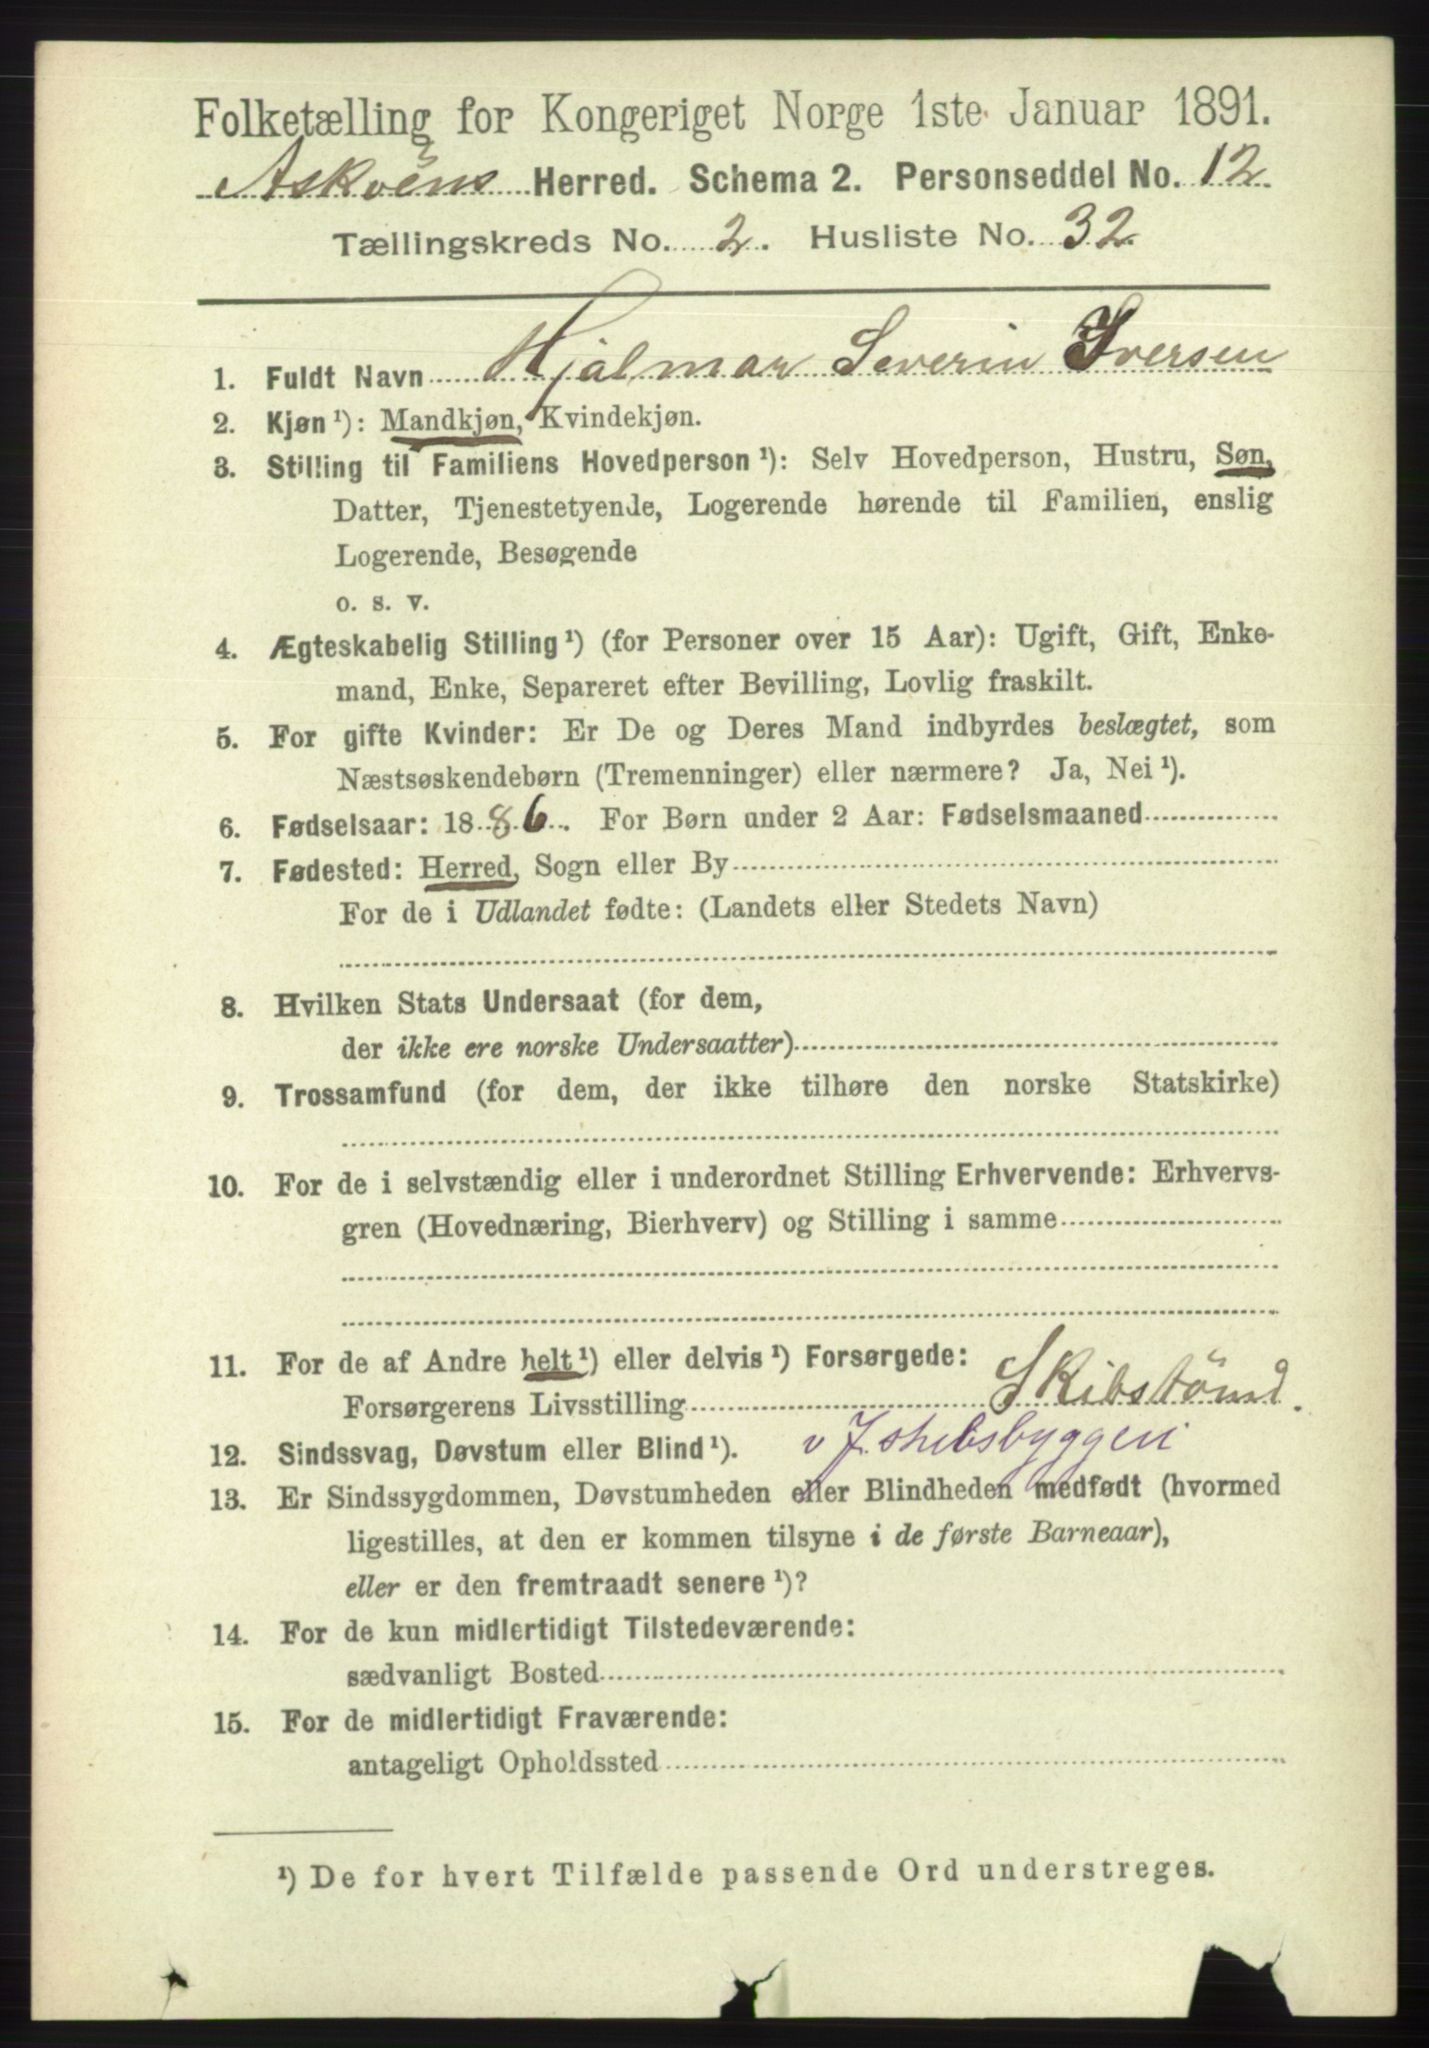 Folketælling for Kongeriget Norge 1ste Januar 1891.
Askøens Herred. Schema 2. Personseddel No. 12
Tællingskreds No. 2. Husliste No. 32
1. Fuldt Navn Hjalmar Severin Iversen
2. Kjøn¹): Mandkjøn, Kvindekjøn.
3. Stilling til Familiens Hovedperson¹): Selv Hovedperson, Hustru, Søn,
Datter, Tjenestetyende, Logerende hørende til Familien, enslig
Logerende, Besøgende
o. s. v.
4. Ægteskabelig Stilling¹) (for Personer over 15 Aar): Ugift, Gift, Enke-
mand, Enke, Separeret efter Bevilling, Lovlig fraskilt.
5. For gifte Kvinder: Er De og Deres Mand indbyrdes beslægtet, som
Næstsøskendebørn (Tremenninger) eller nærmere? Ja, Nei¹).
6. Fødselsaar: 1886. For Børn under 2 Aar: Fødselsmaaned
7. Fødested: Herred, Sogn eller By
For de i Udlandet fødte: (Landets eller Stedets Navn)
8. Hvilken Stats Undersaat (for dem,
der ikke ere norske Undersaatter)
9. Trossamfund (for dem, der ikke tilhøre den norske Statskirke)
10. For de i selvstændig eller i underordnet Stilling Erhvervende: Erhvervs-
gren (Hovednæring, Bierhverv) og Stilling i samme
11. For de af Andre helt¹) eller delvis¹) Forsørgede:
Forsørgerens Livsstilling Skibstømd.
12. Sindssvag, Døvstum eller Blind¹). v
13. Er Sindssygdommen, Døvstumheden eller Blindheden medfødt (hvormed
ligestilles, at den er kommen tilsyne i de første Barneaar),
eller er den fremtraadt senere¹)?
14. For de kun midlertidigt Tilstedeværende:
sædvanligt Bosted
15. For de midlertidigt Fraværende:
antageligt Opholdssted
¹) De for hvert Tilfælde passende Ord understreges.